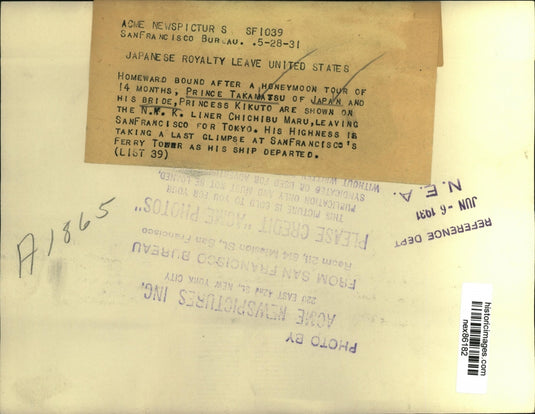 ACME NEWSPICTURS SF1039
SANFRANCISCO BUREAU. .5-28-31
JAPANESE ROYALTY LEAVE UNITED STATES
HOMEWARD BOUND AFTER A HONEYMOON TOUR OF
14 MONTHS, PRINCE TAKAMATSU OF JAPAN AND
HIS BRIDE, PRINCESS KIKUTO ARE SHOWN ON
THE N.Y. K. LINER CHICHIBU MARU, LEAVING
SANFRANCISCO FOR TOKYO. HIS HIGHNESS IS
TAKING A LAST GLIMPSE AT SANFRANCISCO'S
FERRY TOWER AS HIS SHIP DEPARTED.
(LIST 39)
A1865
PHOTO BY
ACME NEWSPICTURES INC.
220 EAST 42nd ST., NEW YORK CITY
FROM SAN FRANCISCO BUREAU
Room 211, 814 Mission St., San Francisco
PLEASE CREDIT "ACME PHOTOS"
THIS PICTURE IS SOLD TO YOU FOR YOUR
PUBLICATION ONLY AND MUST NOT BE LOANED,
SYNDICATED OR USED FOR ADVERTISING
WITHOUT
N. E. A.
JUN - 6 1931
REFERENCE DEPT
historicimages.com
nex86182